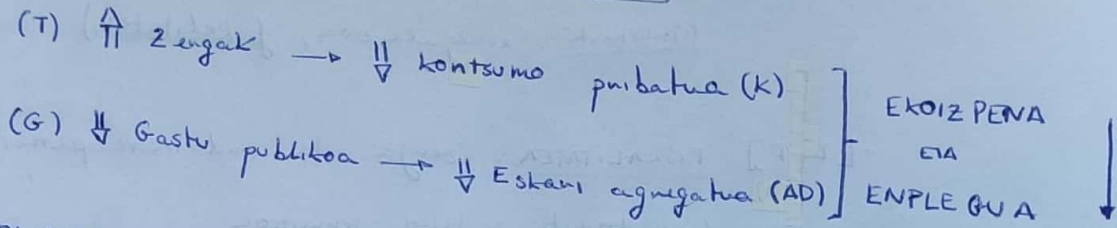 (T) ⇑ Zergak → ⇓ kontsumo pribatua (K)
(G) ⇓ Gastu publikoa → ⇓ Eskari agregatua (AD)
EKOIZPENA
ETA
ENPLEGUA ↓